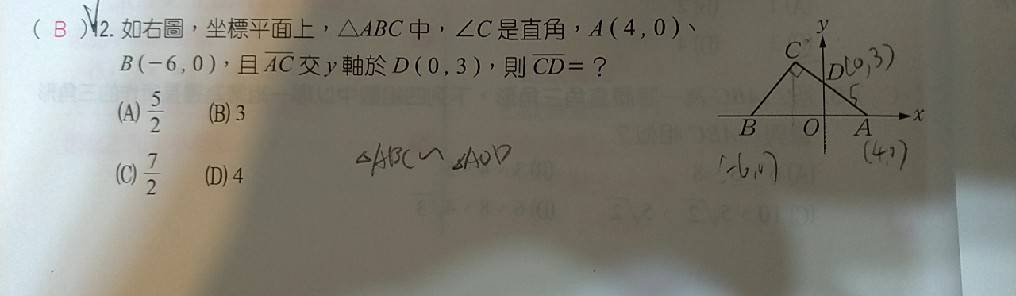 ( B ) 12. 如右圖，坐標平面上，△ABC 中，∠C 是直角，A(4, 0)、
B(-6, 0)，且 AC 交 y 軸於 D(0, 3)，則 CD = ？
(A) 5/2 (B) 3
(C) 7/2 (D) 4
△ABC ∽ △AOD
y
C
D (0,3)
5
B O A x
(-6,0) (4,0)